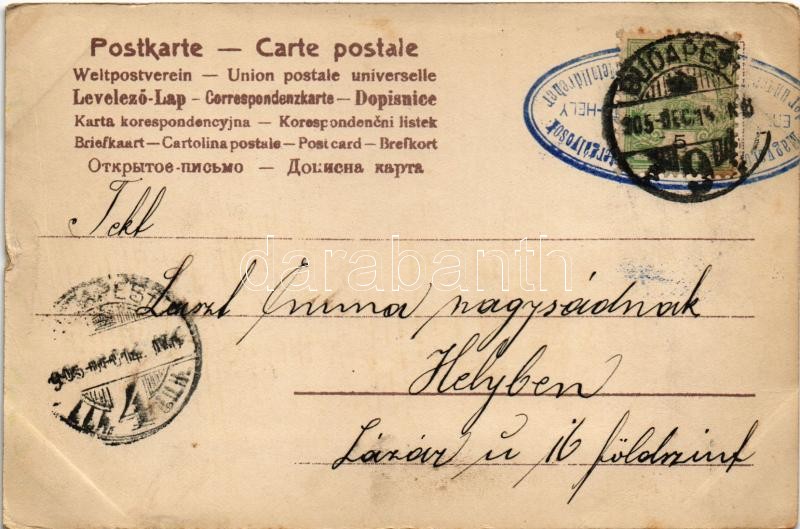 Postkarte — Carte postale
Weltpostverein — Union postale universelle
Levelező-Lap - Correspondenzkarte — Dopisnice
Karta korespondencyjna — Korespondenční listek
Briefkaart — Cartolina postale — Post card — Brefkort
Открытое-письмо — Дописна карта
BUDAPEST
905 DEC 14
5
HELY
Tekt
Laszt Emma nagysádnak
Helyben
Lázár u 16 földszint
905 DEC 14
darabanth